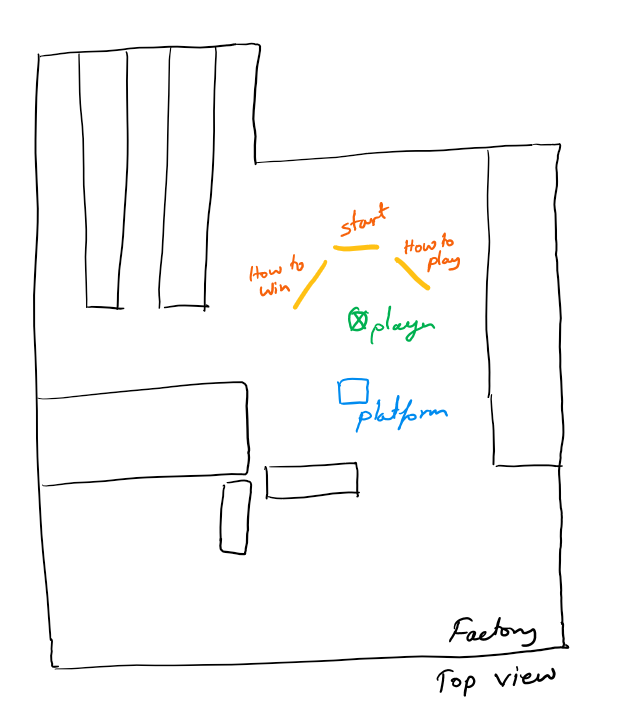 start
How to
win
How to
play
player
platform
Factory
Top view